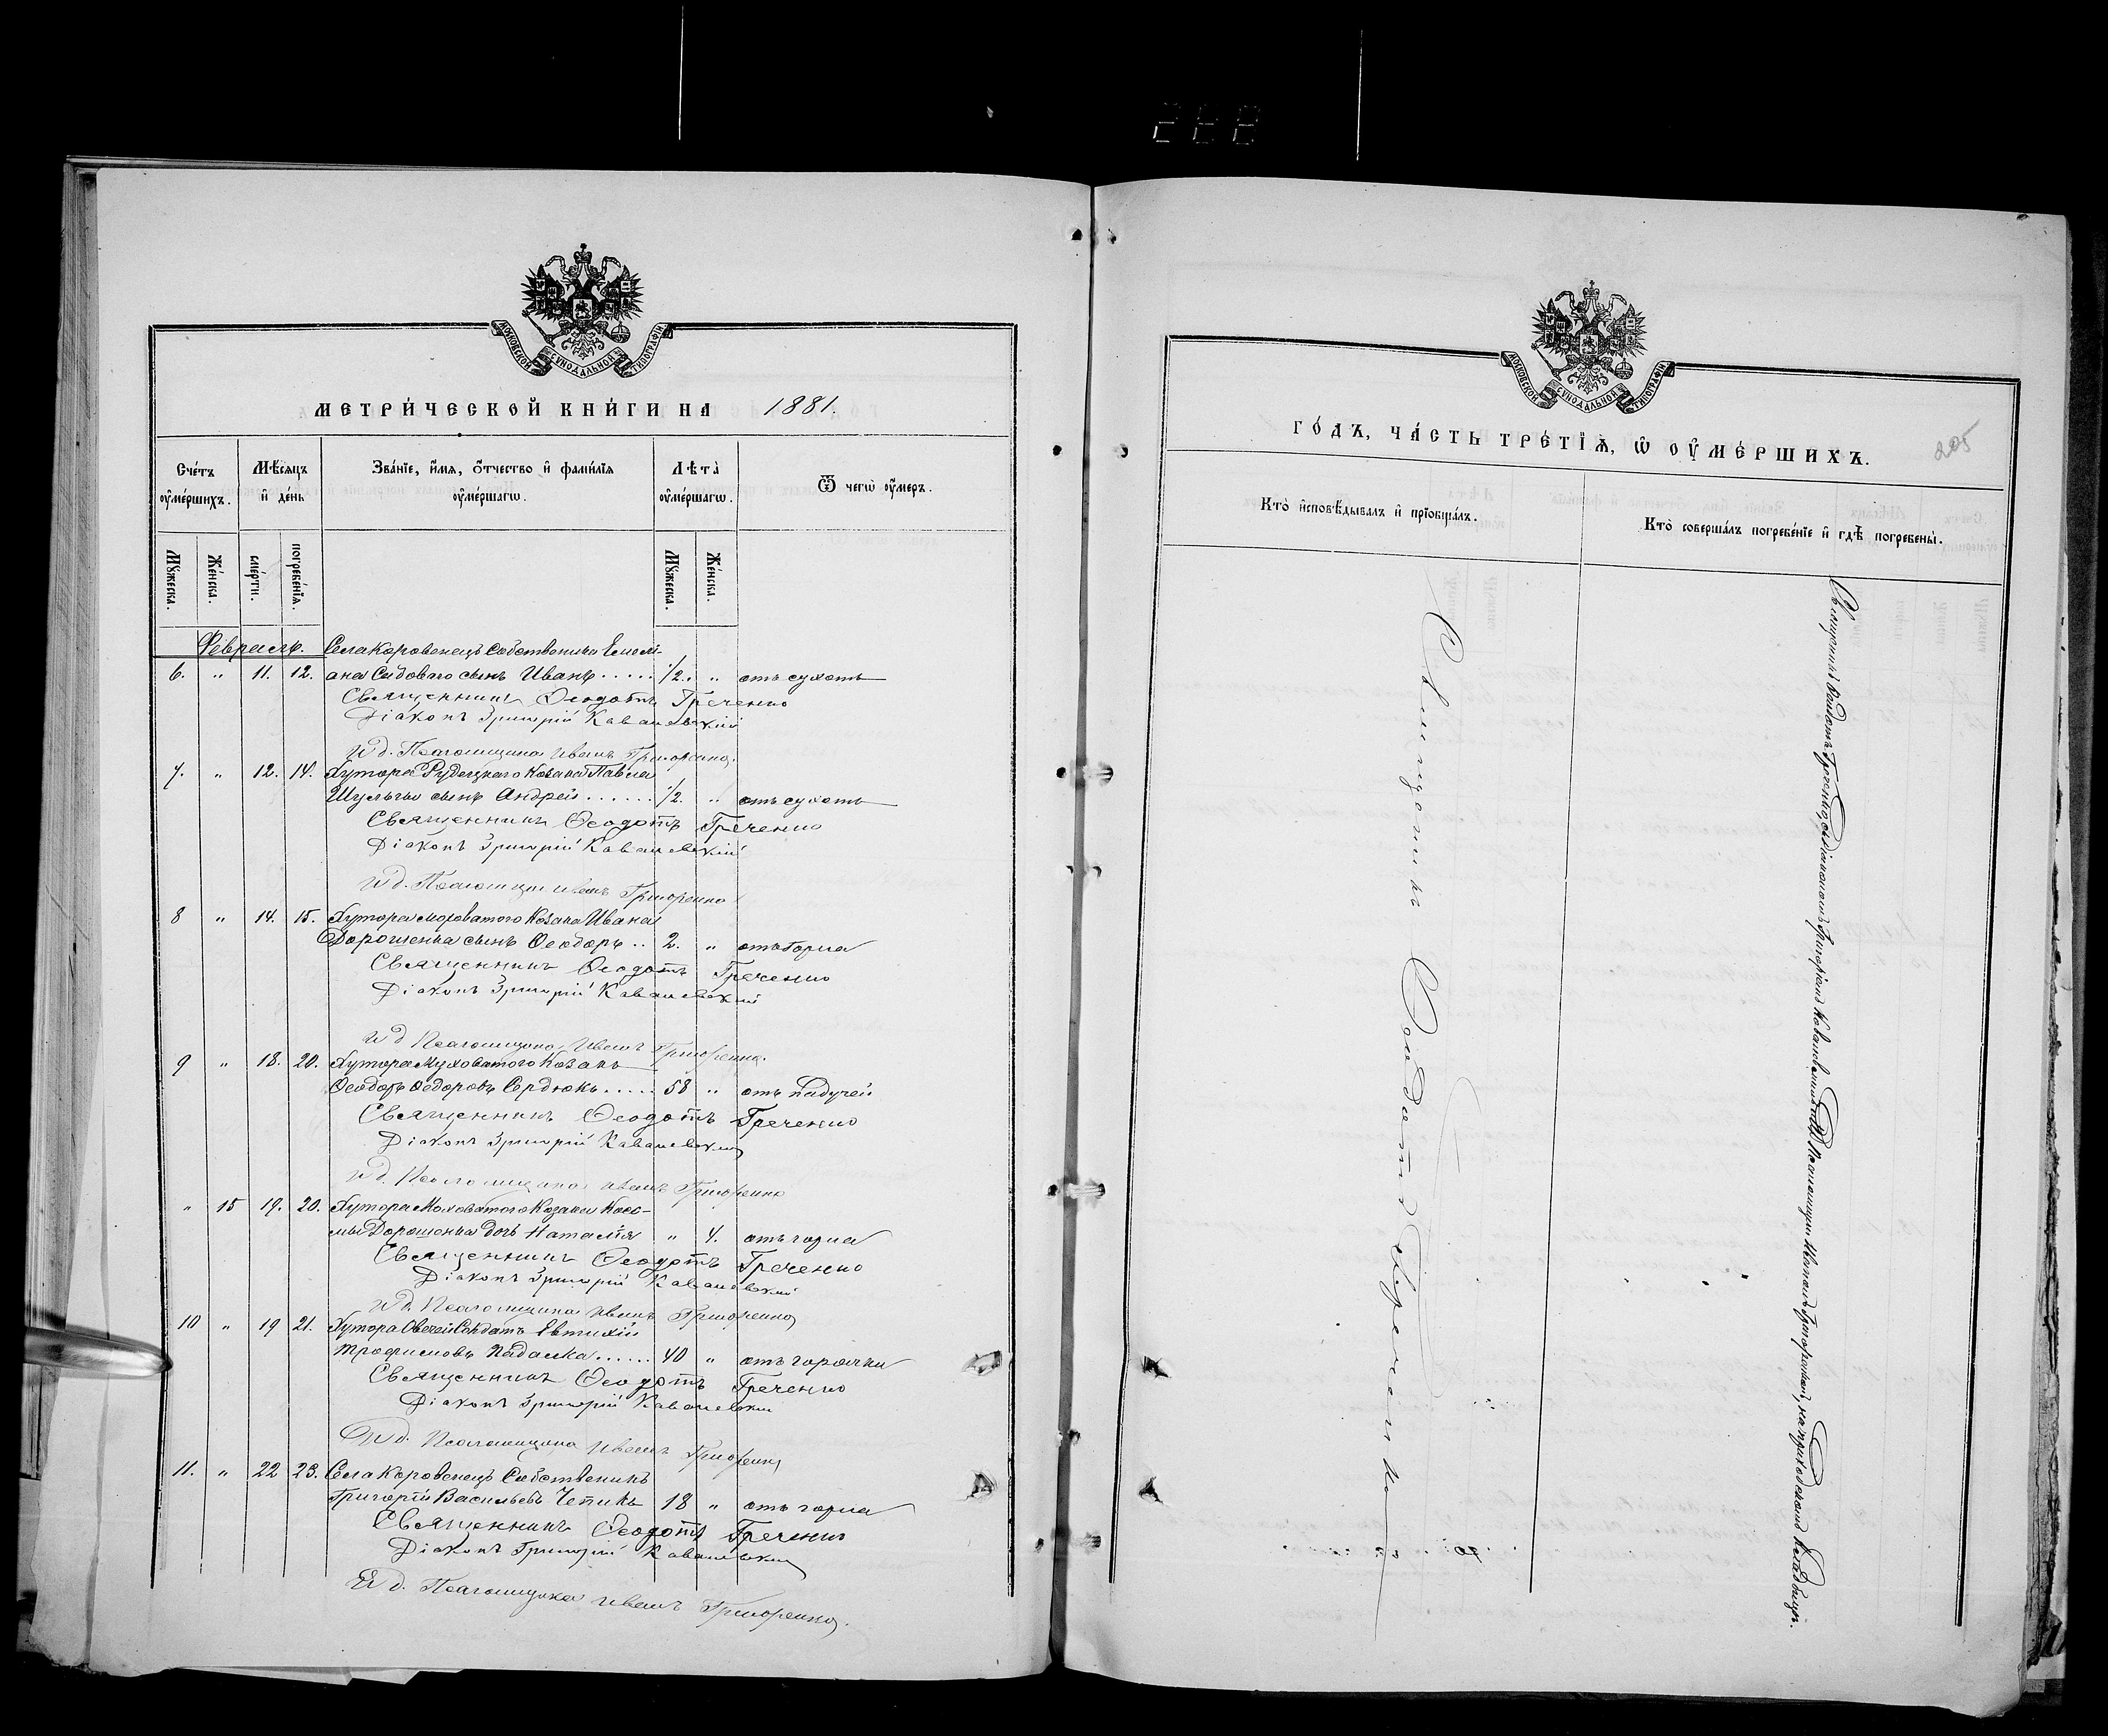 888
МОСКОВСКОЙ СѴНОДАЛЬНОЙ ТИПОГРАФІИ
МЕТРИ́ЧЕСКОЙ КНИ́ГИ НА 1881.
Сче́тъ ᲂу҆ме́ршихъ.
Мѣ́сѧцъ и҆ де́нь
Зва́нїе, и҆́мѧ, ѻ҆́тчество и҆ фами́лїѧ ᲂу҆ме́ршагѡ.
Лѣ́та ᲂу҆ме́ршагѡ.
Ѿ чегѡ̀ ᲂу҆́меръ.
Мꙋ́жеска.
Же́нска.
сме́рти.
погребе́нїѧ.
Мꙋ́жеска.
Же́нска.
Февраль. Села Коровенецъ Собственика Емелі-
6. " 11. 12. ана Садоваго сынъ Иванъ ..... 1/2. " отъ сухотъ
Священникъ Ѳеодотъ Греченко
Діаконъ Григорій Ковалевскій
И д. Псаломщика Иванъ Григоренко.
7. " 12. 14. Хутора Рудецкаго Козака Павла
Шульги сынъ Андрей ...... 1/2. " отъ сухотъ
Священникъ Ѳеодотъ Греченко
Діаконъ Григорій Ковалевскій
И д. Псаломщи Иванъ Григоренко
8 " 14. 15. Хутора Моховатого Козака Ивана
Дорошенка сынъ Ѳеодоръ .. 2. " отъ горла
Священникъ Ѳеодотъ Греченко
Діаконъ Григорій Ковалевскій
И д Псаломщика Иванъ Григоренко.
9 " 18. 20. Хутора Муховатого Козакъ
Ѳеодоръ Ѳедоровъ Сердюкъ ..... 58 " отъ падучей
Священникъ Ѳеодотъ Греченко
Діаконъ Григорій Ковалевскій
И д. Псаломщика Иванъ Григоренко
" 15 19. 20. Хутора Моховатого Козака Кос-
мы Дорошенка дочь Наталія " 4. отъ горла
Священникъ Ѳеодотъ Греченко
Діаконъ Григорій Ковалевскій
И д. Псаломщика Иванъ Григоренко
10 " 19 21. Хутора Овечей Солдатъ Евтихій
Трофимовъ Падалка ...... 40 " отъ горячки
Священникъ Ѳеодотъ Греченко
Діаконъ Григорій Ковалевскій
И д. Псаломщика Иванъ Григоренко
11. " 22 23. Села Коровенецъ Собственикъ
Григорій Васильевъ Чепикъ 18 " отъ горла
Священникъ Ѳеодотъ Греченко
Діаконъ Григорій Ковалевскій
И д. Псаломщика Иванъ Григоренко.
МОСКОВСКОЙ СѴНОДАЛЬНОЙ ТИПОГРАФІИ
ГО́ДЪ, ЧА́СТЬ ТРЕ́ТЇѦ, Ѡ҆ ОУ҆МЕ́РШИХЪ.
205
Кто̀ и҆сповѣ́дывалъ и҆ прїобща́лъ.
Кто̀ соверша́лъ погребе́нїе и҆ гдѣ̀ погребены̀.
Священникъ Ѳеодотъ Греченко
Священникъ Ѳеодотъ Греченко, съ Діакономъ Григоріемъ Ковалевскимъ и И Д Псаломщика Иваномъ Григоренкомъ, на приходскомъ кладбищѣ.